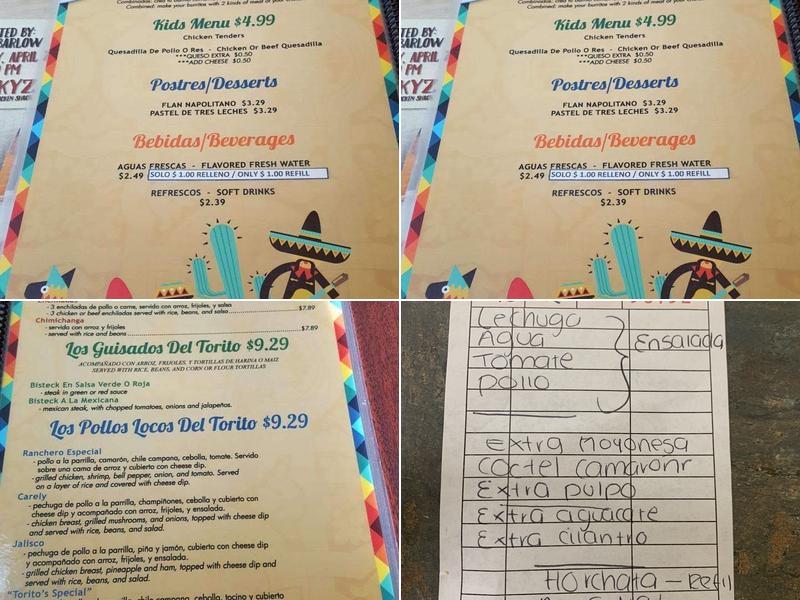 TED BY:
BARLOW
, APRIL
PM
KYZ
CHICKEN SHACK
Combined: make your burritos with 2 kinds of meat of your
Kids Menu $4.99
Chicken Tenders
Quesadilla De Pollo O Res - Chicken Or Beef Quesadilla
***QUESO EXTRA $0.50
***ADD CHEESE $0.50
Postres/Desserts
FLAN NAPOLITANO $3.29
PASTEL DE TRES LECHES $3.29
Bebidas/Beverages
AGUAS FRESCAS - FLAVORED FRESH WATER
$2.49 SOLO $ 1.00 RELLENO / ONLY $ 1.00 REFILL
REFRESCOS - SOFT DRINKS
$2.39
TED BY:
BARLOW
, APRIL
PM
KYZ
CHICKEN SHACK
Combined: make your burritos with 2 kinds of meat of your
Kids Menu $4.99
Chicken Tenders
Quesadilla De Pollo O Res - Chicken Or Beef Quesadilla
***QUESO EXTRA $0.50
***ADD CHEESE $0.50
Postres/Desserts
FLAN NAPOLITANO $3.29
PASTEL DE TRES LECHES $3.29
Bebidas/Beverages
AGUAS FRESCAS - FLAVORED FRESH WATER
$2.49 SOLO $ 1.00 RELLENO / ONLY $ 1.00 REFILL
REFRESCOS - SOFT DRINKS
$2.39
- 3 enchiladas de pollo o carne, servida con arroz, frijoles, y salsa
- 3 chicken or beef enchiladas served with rice, beans, and salsa $7.89
Chimichanga
- servida con arroz y frijoles
- served with rice and beans $7.89
Los Guisados Del Torito $9.29
ACOMPAÑADO CON ARROZ, FRIJOLES, Y TORTILLAS DE HARINA O MAIZ
SERVED WITH RICE, BEANS, AND CORN OR FLOUR TORTILLAS
Bisteck En Salsa Verde O Roja
- steak in green or red sauce
Bisteck A La Mexicana
- mexican steak, with chopped tomatoes, onions and jalapeños.
Los Pollos Locos Del Torito $9.29
Ranchero Especial
- pollo a la parrilla, camarón, chile campana, cebolla, tomate. Servido
sobre una cama de arroz y cubierto con cheese dip.
- grilled chicken, shrimp, bell pepper, onion, and tomato. Served
on a layer of rice and covered with cheese dip.
Carely
- pechuga de pollo a la parrilla, champiñones, cebolla y cubierto con
cheese dip y acompañado con arroz, frijoles, y ensalada.
- chicken breast, grilled mushrooms, and onions, topped with cheese dip
and served with rice, beans, and salad.
Jalisco
- pechuga de pollo a la parrilla, piña y jamón, cubierto con cheese dip
y acompañado con arroz, frijoles, y ensalada.
- grilled chicken breast, pineapple and ham, topped with cheese dip and
served with rice, beans, and salad.
"Torito's Special"
chile campana, cebolla, tocino y cubierto
Lechuga
Agua
Tomate
pollo
Ensalada
extra mayonesa
Coctel camaronr
Extra pulpo
Extra aguacate
Extra cilantro
Horchata - Refil